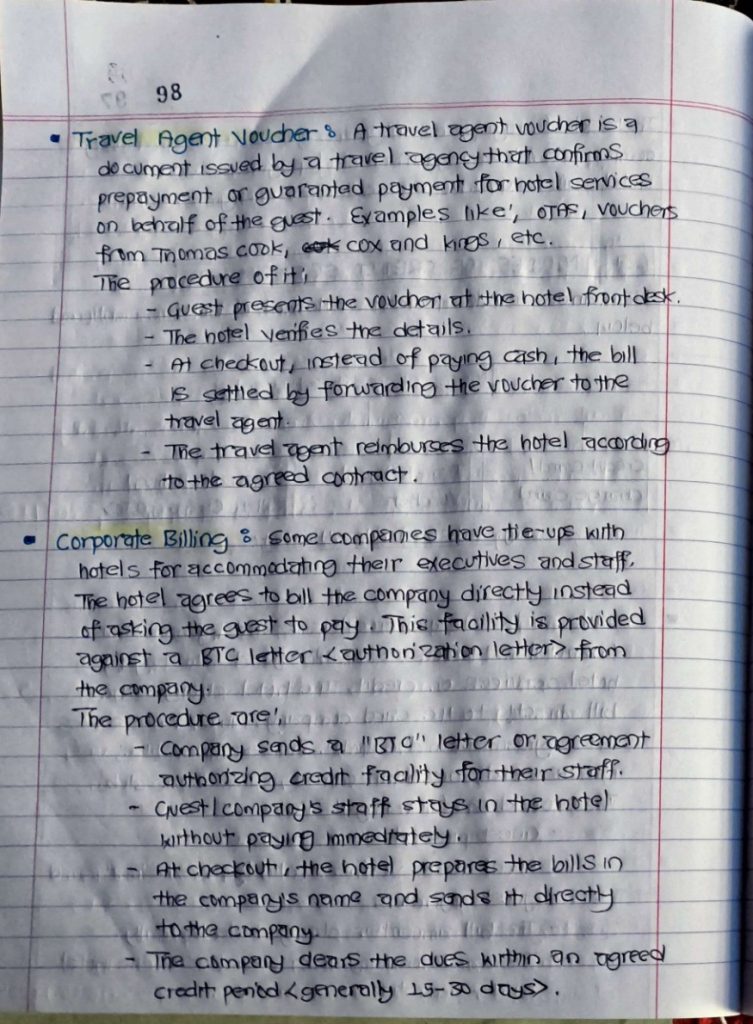 98
• Travel Agent Voucher : A travel agent voucher is a
document issued by a travel agency that confirms
prepayment or guaranted payment for hotel services
on behalf of the guest. Examples like', OTAS, vouchers
from Thomas cook, cox and kings, etc.
The procedure of it',
- Guest presents the voucher at the hotel front desk.
- The hotel verifies the details.
- At checkout, instead of paying cash, the bill
is settled by forwarding the voucher to the
travel agent.
- The travel agent reimburses the hotel according
to the agreed contract.
• Corporate Billing : Some companies have tie-ups with
hotels for accommodating their executives and staff.
The hotel agrees to bill the company directly instead
of asking the guest to pay. This facility is provided
against a BTC letter <authorization letter> from
the company.
The procedure are',
- Company sends a "BTC" letter or agreement
authorizing credit facility for their staff.
- Guest/company's staff stays in the hotel
without paying immediately.
- At checkout, the hotel prepares the bills in
the company's name and sends it directly
to the company.
- The company clears the dues within an agreed
credit period <generally 15-30 days>.